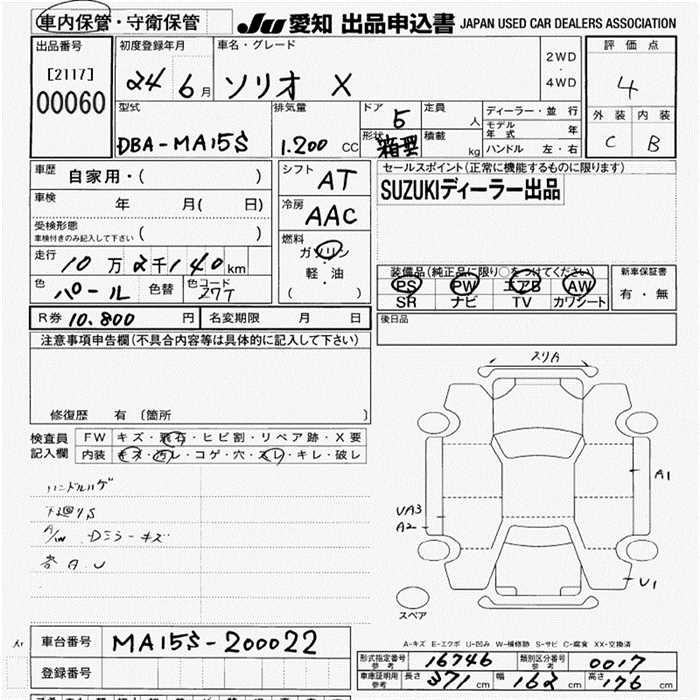 車内保管・守衛保管 JU 愛知 出品申込書 JAPAN USED CAR DEALERS ASSOCIATION
出品番号 初度登録年月 車名・グレード 2WD・4WD 評価点
[2117] 00060 24 6月 ソリオ X 4
型式 排気量 ドア 5 定員 人 ディーラー・並行 外装 内装
DBA-MA15S 1.200 CC 形状 箱型 積載 kg モデル年式 年 C B
ハンドル 左・右
車歴 自家用・( ) シフト AT セールスポイント(正常に機能するものに限ります)
車検 年 月( 日) 冷房 AAC SUZUKIディーラー出品
受検形態
車検付きのみ記入して下さい ( ) 燃料 ガソリン
走行 10万2千140km 軽・油 装備品(純正品に限り○をつけてください) 新車保証書
色 パール 色替 色コード Z7T ( ) PS PW エアB AW 有・無
SR ナビ TV カワシート
R券 10.800 円 名変期限 月 日 後日品
注意事項申告欄(不具合内容等は具体的に記入して下さい)
修復歴 有 〔箇所 〕
検査員記入欄 FW キズ・飛石・ヒビ割・リペア跡・X要
内装 キズ・汚レ・コゲ・穴・スレ・キレ・破レ
ハンドルハゲ
下廻りS
A/W Dミラーキズ
各 A U
スリA
A1
UA3
A2
U1
スペア
A-キズ E-エクボ U-凹み W-補修跡 S-サビ C-腐食 XX-交換済
車台番号 MA15S-200022
登録番号
形式指定番号 参考 16746 類別区分番号 参考 0017
車庫証明用 参考 長さ 371cm 幅 162cm 高さ 176cm